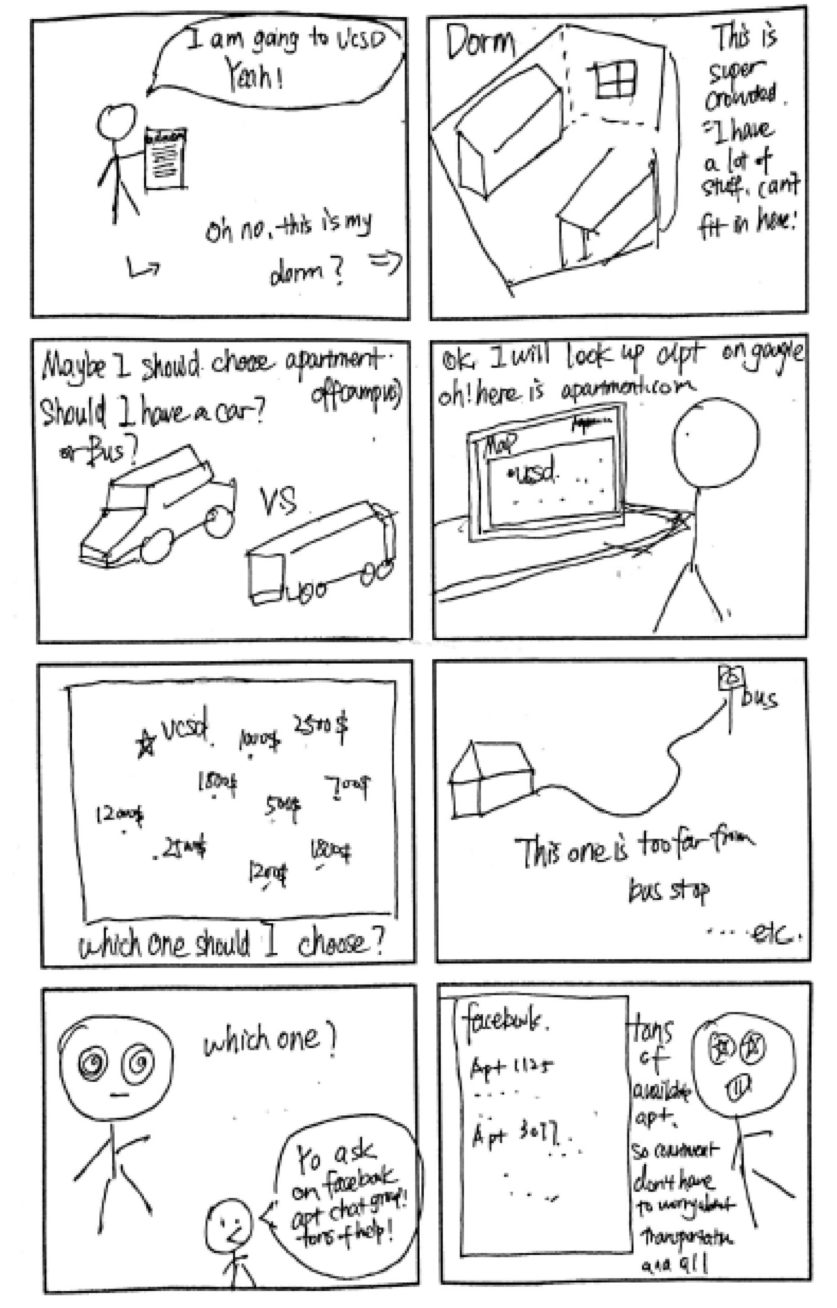 I am going to UCSD
Yeah!
Oh no, this is my
dorm?
Dorm
This is
super
crowded.
I have
a lot of
stuff. can't
fit in here!
Maybe I should choose apartment.
offcampus)
Should I have a car?
or Bus?
VS
Ok, I will look up apt on google
oh! here is apartment.com
Map
ucsd.
ucsd.
1000$
2500$
1800$
700$
500$
1200$
2500$
1200$
1800$
which one should I choose?
bus
This one is too far from
bus stop
.... etc.
which one?
Yo ask
on facebook
apt chat group!
tons of help!
facebook.
Apt 1125
Apt 3077
tons
of
available
apt.
So convient
don't have
to worry about
Transportation
and all